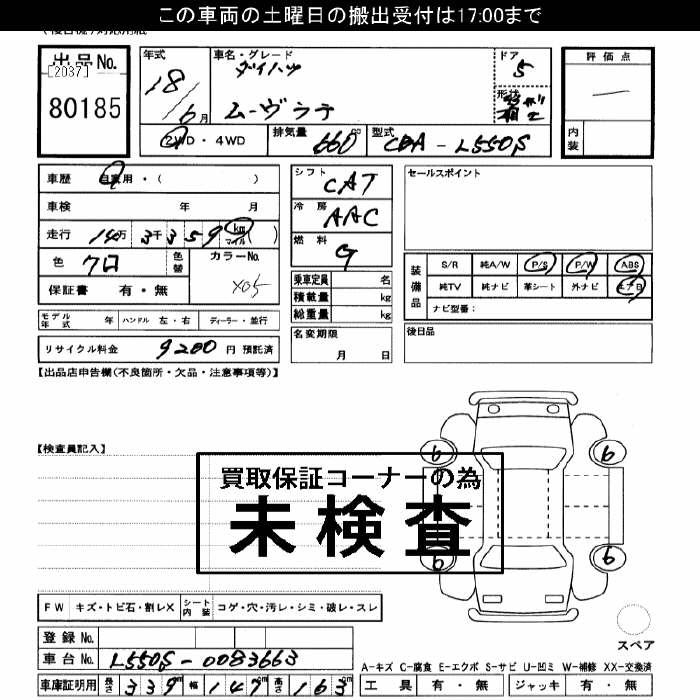 この車両の土曜日の搬出受付は17:00まで
出品No.
[2037]
80185
年式
18/6月
車名・グレード
ダイハツ
ムーヴラテ
ドア
5
形状
評価点
内装
2WD・4WD
排気量 660 cc
型式 CBA-L550S
車歴 自家用・( )
車検 年 月
走行 14万3千359 km マイル ( )
色 クロ
色替
カラーNo.
X05
保証書 有・無
モデル年式 年 ハンドル 左・右 ディーラー・並行
リサイクル料金 9200 円 預託済
シフト CAT
冷房 AAC
燃料 G
乗車定員 名
積載量 kg
総重量 kg
名変期限
月 日
セールスポイント
装備品
S/R 純A/W P/S P/W ABS
純TV 純ナビ 革シート 外ナビ エアB
ナビ型番:
後日品
【出品店申告欄(不良箇所・欠品・注意事項等)】
【検査員記入】
6 6
6 6
買取保証コーナーの為
未検査
FW キズ・トビ石・割レX シート内装 コゲ・穴・汚レ・シミ・破レ・スレ
登録No.
車台No. L550S-0083663
車庫証明用 長さ 339cm 幅 147cm 高さ 163cm
スペア
A-キズ C-腐食 E-エクボ S-サビ U-凹ミ W-補修 XX-交換済
工具 有・無 ジャッキ 有・無